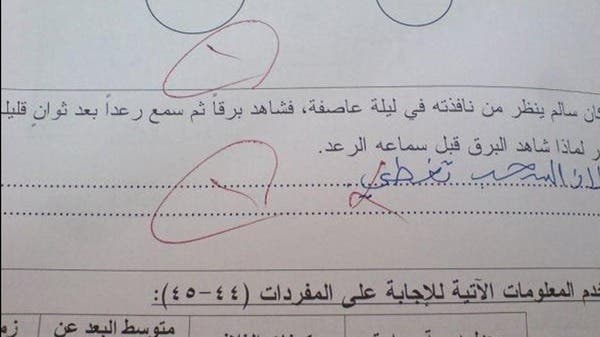 كان سالم ينظر من نافذته في ليلة عاصفة، فشاهد برقاً ثم سمع رعداً بعد ثوانٍ قليلة
لماذا شاهد البرق قبل سماعه الرعد.
السحب تغطي
المعلومات الآتية للإجابة على المفردات (٤٤-٤٥):
متوسط البعد عن